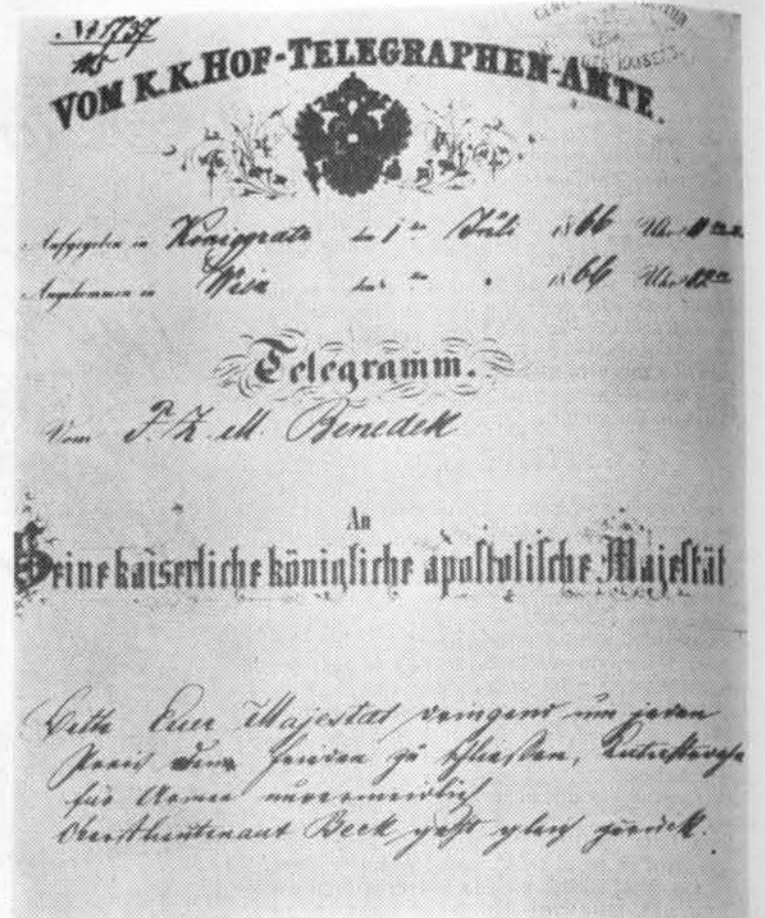 No 1737
115
VOM K.K. HOF-TELEGRAPHEN-AMTE.
Aufgegeben in Königgratz den 1 ten Juli 1866 Uhr
Angekommen in Wien den ten " 1866 Uhr
Telegramm.
Vom F. Z. M. Benedek
An
Seine kaiserliche königliche apostolische Majestät
Bitte Euer Majestät dringend um jeden
Preis den Frieden zu schließen, Katastrophe
für Armee unvermeidlich
Oberstlieutenant Beck geht gleich zurück.